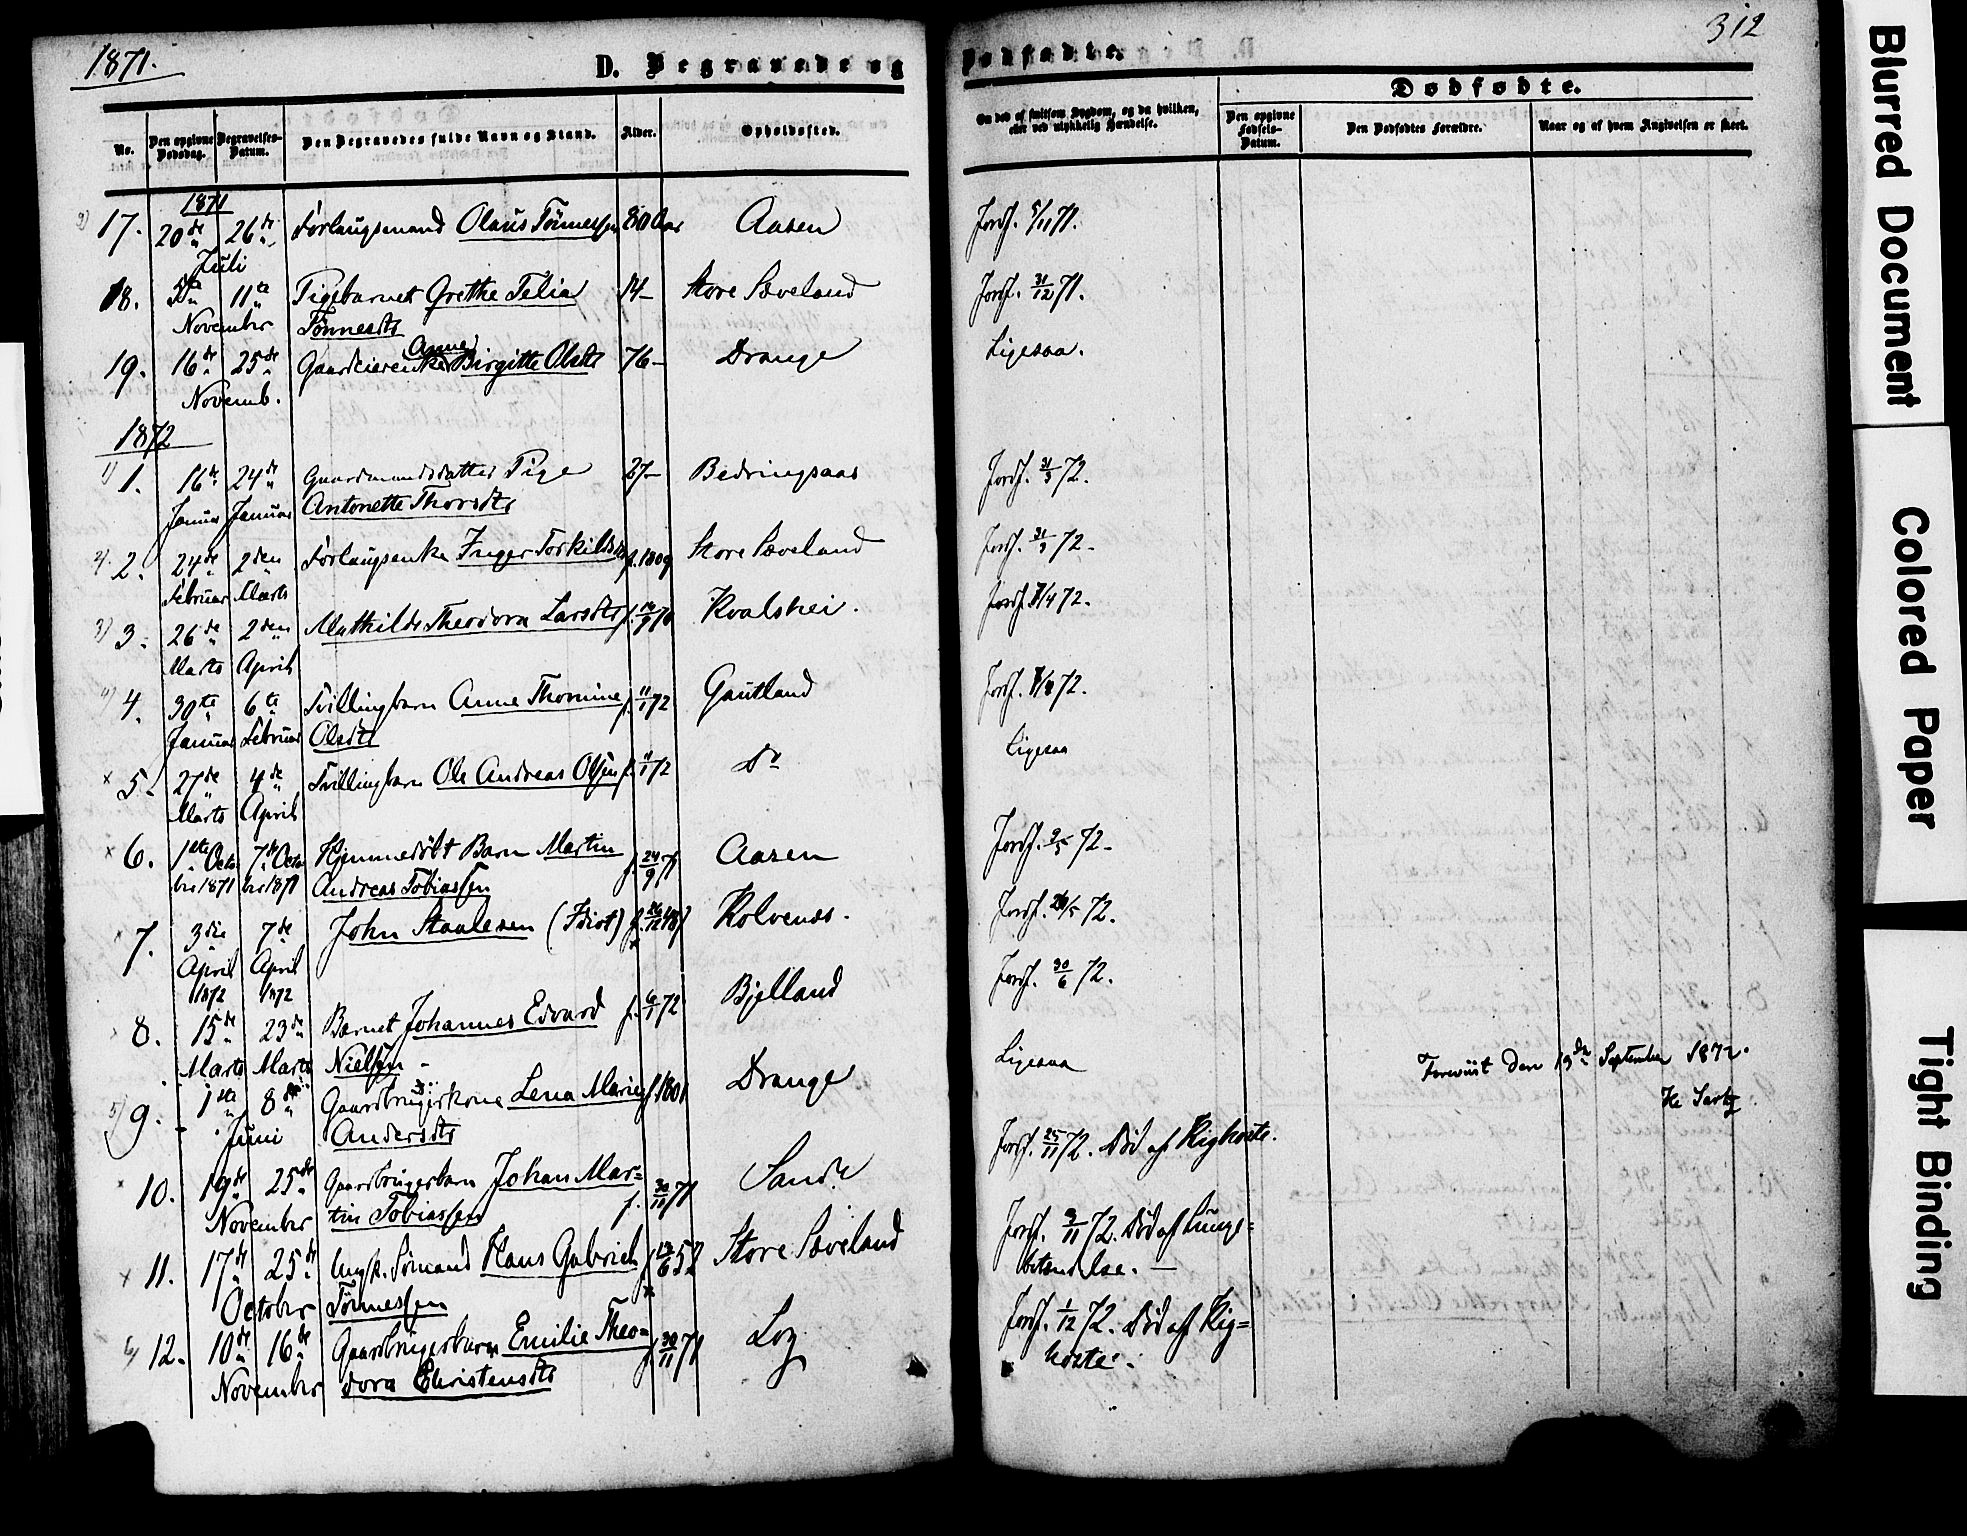 1871.
D. Begravede og
Dødfødte.
312
No.
Den opgivne Dødsdag.
Begravelses-Datum.
Den Begravedes fulde Navn og Stand.
Alder.
Opholdssted.
Om død af smitsom Sygdom, og da hvilken, eller ved ulykkelig Hændelse.
Dødfødte.
Den opgivne Fødsels-Datum.
Den Dødfødtes Forældre.
Naar og af hvem Angivelsen er skeet.
1871
17. 20de 26de Forlaugsmand Olaus Tønnessen 80 Aar Aasen Jordf. 5/11 71.
Juli
18. 5te 11te Pigebarnet Grethe Telia 14- Store Sæveland Jordf. 31/12 71.
November Tønnesdtr
19. 16de 25de Gaardeierenke Anne Birgitte Olsdtr 76- Drange Ligesaa.
Novemb.
1872
1. 16de 24de Gaardmandsdatter Pige 27- Bedringsaas Jordf. 31/3 72.
Januar Januar Antonette Thorsdtr
2. 24de 2den Forlaugsenke Inger Torkildsdtr f. 1809 Store Sæveland Jordf. 31/3 72.
Februar Marts
3. 26de 2den Mathilde Theodora Larsdtr Kvalshei. Jordf. 7/4 72.
Marts April
4. 30te 6te Tvillingbarn Anne Thomine f. 11/1 72 Gautland Jordf. 72.
Januar Februar Olsdtr
5. 27de 4de Tvillingbarn Ole Andreas Olsen f. 11/1 72 Do Ligesaa
Marts April
6. 1ste Octo 7de Octo Hjemmedøbt Barn Martin f. 24/9 71 Aasen Jordf. 9/5 72.
ber 1871 ber 1871 Andreas Tobiassen
7. 3die 7de John Staalesen (Idiot) Rolvenss. Jordf. 72.
April April
1872 1872
8. 15de 23de Barnet Johannes Edvard f. 6/1 72 Bjelland Jordf. 30/6 72.
Marts Marts Nielsen -
9. 1ste 8de Gaardbrugerkone Lena Marie f. 1801 Drange Ligesaa
Juni Andersdtr
Foreviist den 13de September 1872.
10. 19de 25de Gaardbrugerbarn Johan Mar= f. 30/11 71 Sande Jordf. 25/11 72. Død af Kighoste.
November tin Tobiassen
11. 17de 25de Ungk. Sømand Hans Gabriel Store Sæveland Jordf. 3/11 72. Død af Lunge=
October Tønnessen betændelse. -
12. 10de 16de Gaardbrugerbarn Emilie Theo= f. 30/11 71 Log Jordf. 1/12 72. Død af Kig=
November dora Christensdtr hoste.
Blurred Document
Colored Paper
Tight Binding